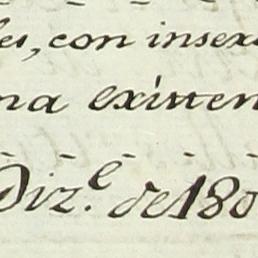 les, con inser
na existen
Diz.e de 180